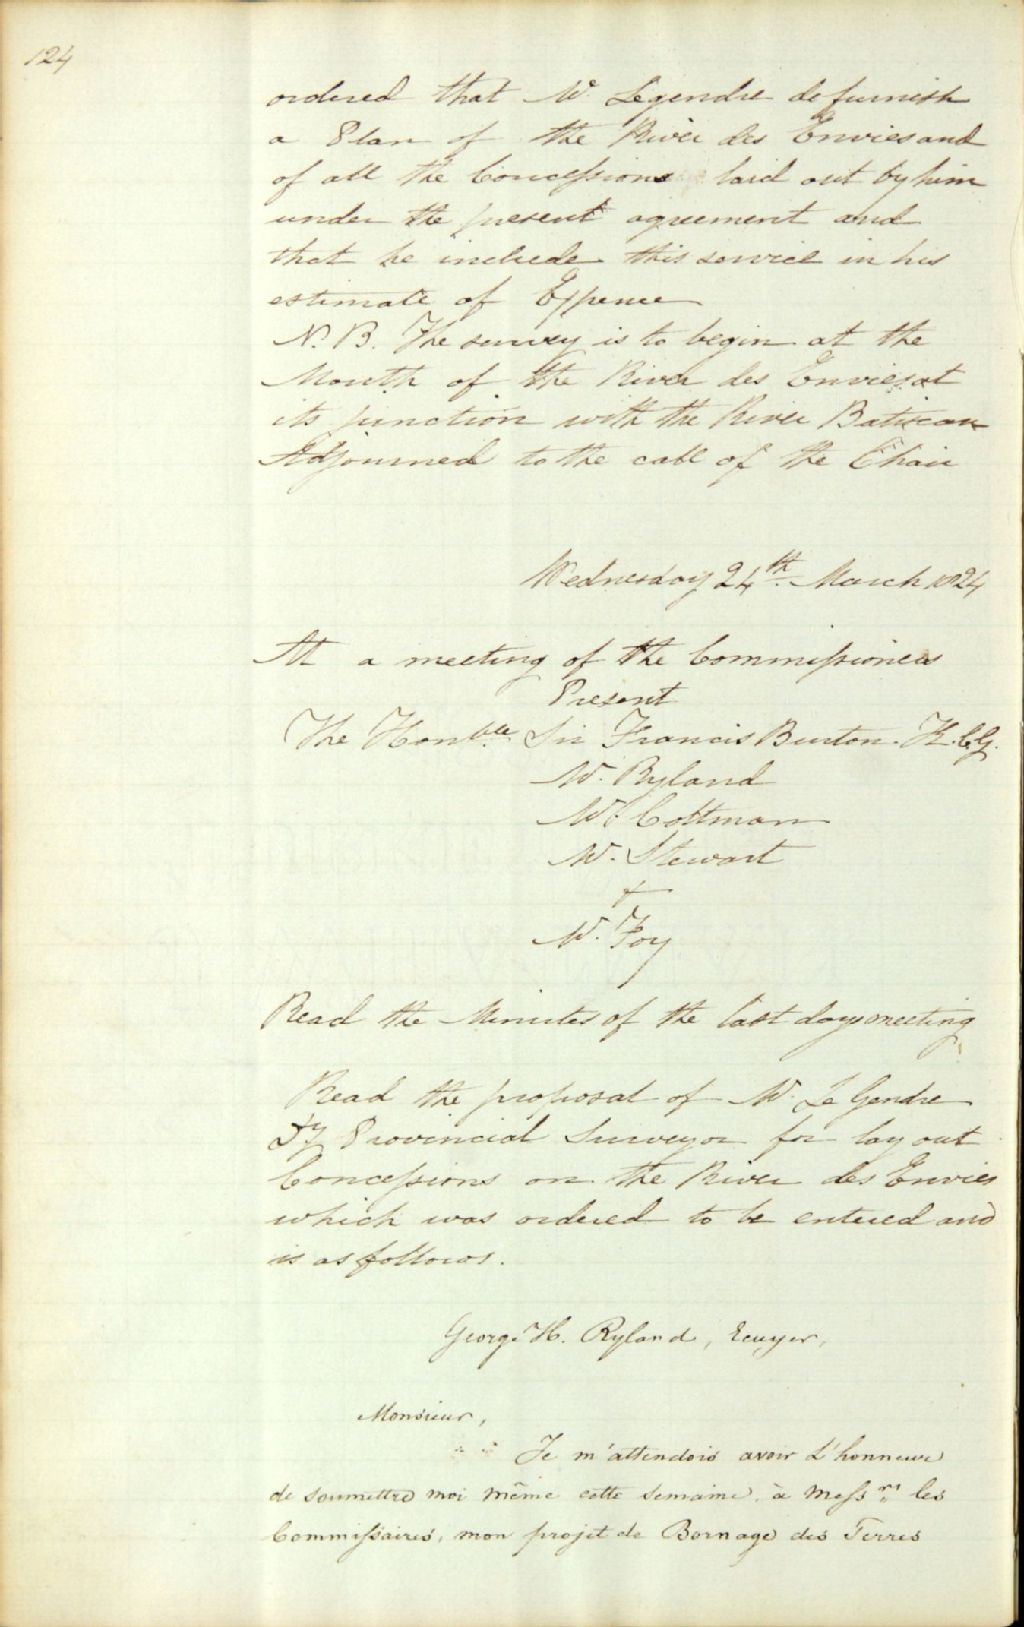 124
ordered that Mr. Legendre do furnish
a Plan of the River des Envies and
of all the Concessions laid out by him
under the present agreement and
that he include this service in his
estimate of Expence
N. B. The survey is to begin at the
Mouth of the River des Envies at
its junction with the River Batiscan
Adjourned to the call of the Chair
Wednesday 24th. March 1824
At a meeting of the Commissioners
Present
The Honble. Sir Francis Burton. K.C.G.
Mr. Ryland
Mr. Coltman
Mr. Stewart
+
Mr. Foy
Read the Minutes of the last days meeting
Read the proposal of Mr. Le Gendre
Dy Provincial Surveyor for lay out
Concessions on the River des Envies
which was ordered to be entered and
is as follows.
George H. Ryland, Ecuyer,
Monsieur,
Je m'attendois avoir L'honneur
de soumettre moi même cette semaine, à Messrs les
Commissaires, mon projet de Bornage des Terres